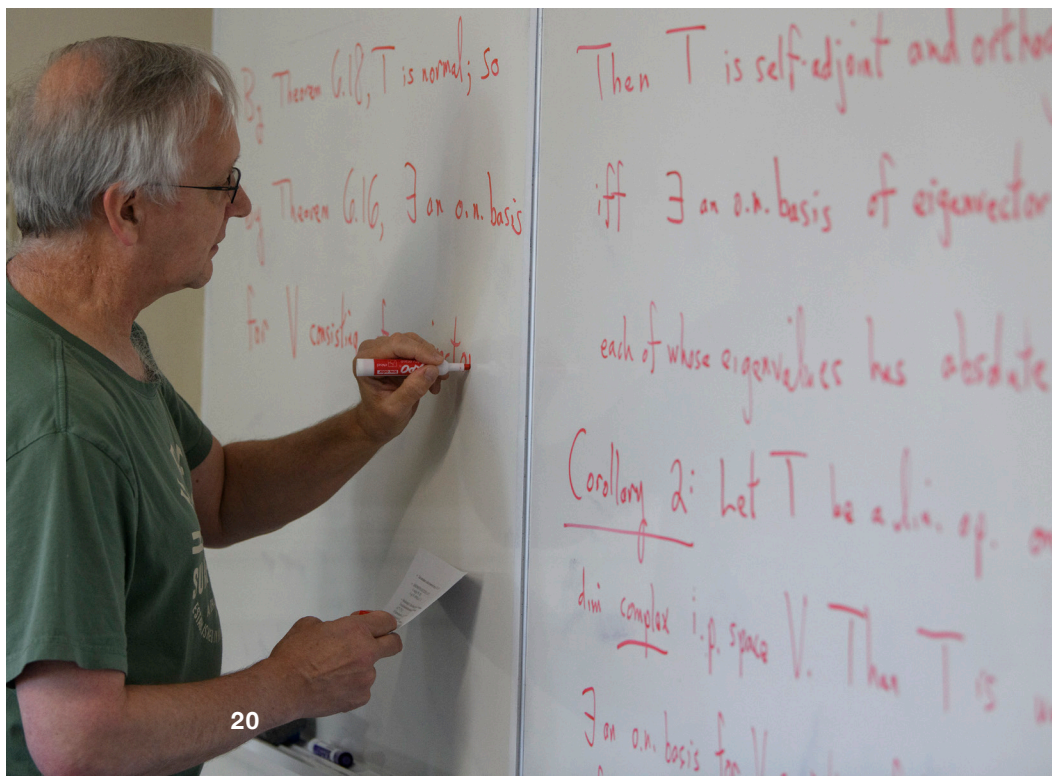 By Theorem 6.18, T is normal; so
by Theorem 6.16, ∃ an o.n. basis
for V consisting
Then T is self-adjoint and orthog
iff ∃ an o.n. basis of eigenvector
each of whose eigenvalues has absolute
Corollary 2: Let T be a lin. op. on
dim complex i.p. space V. Then T is
∃ an o.n. basis for V
EXPO
20